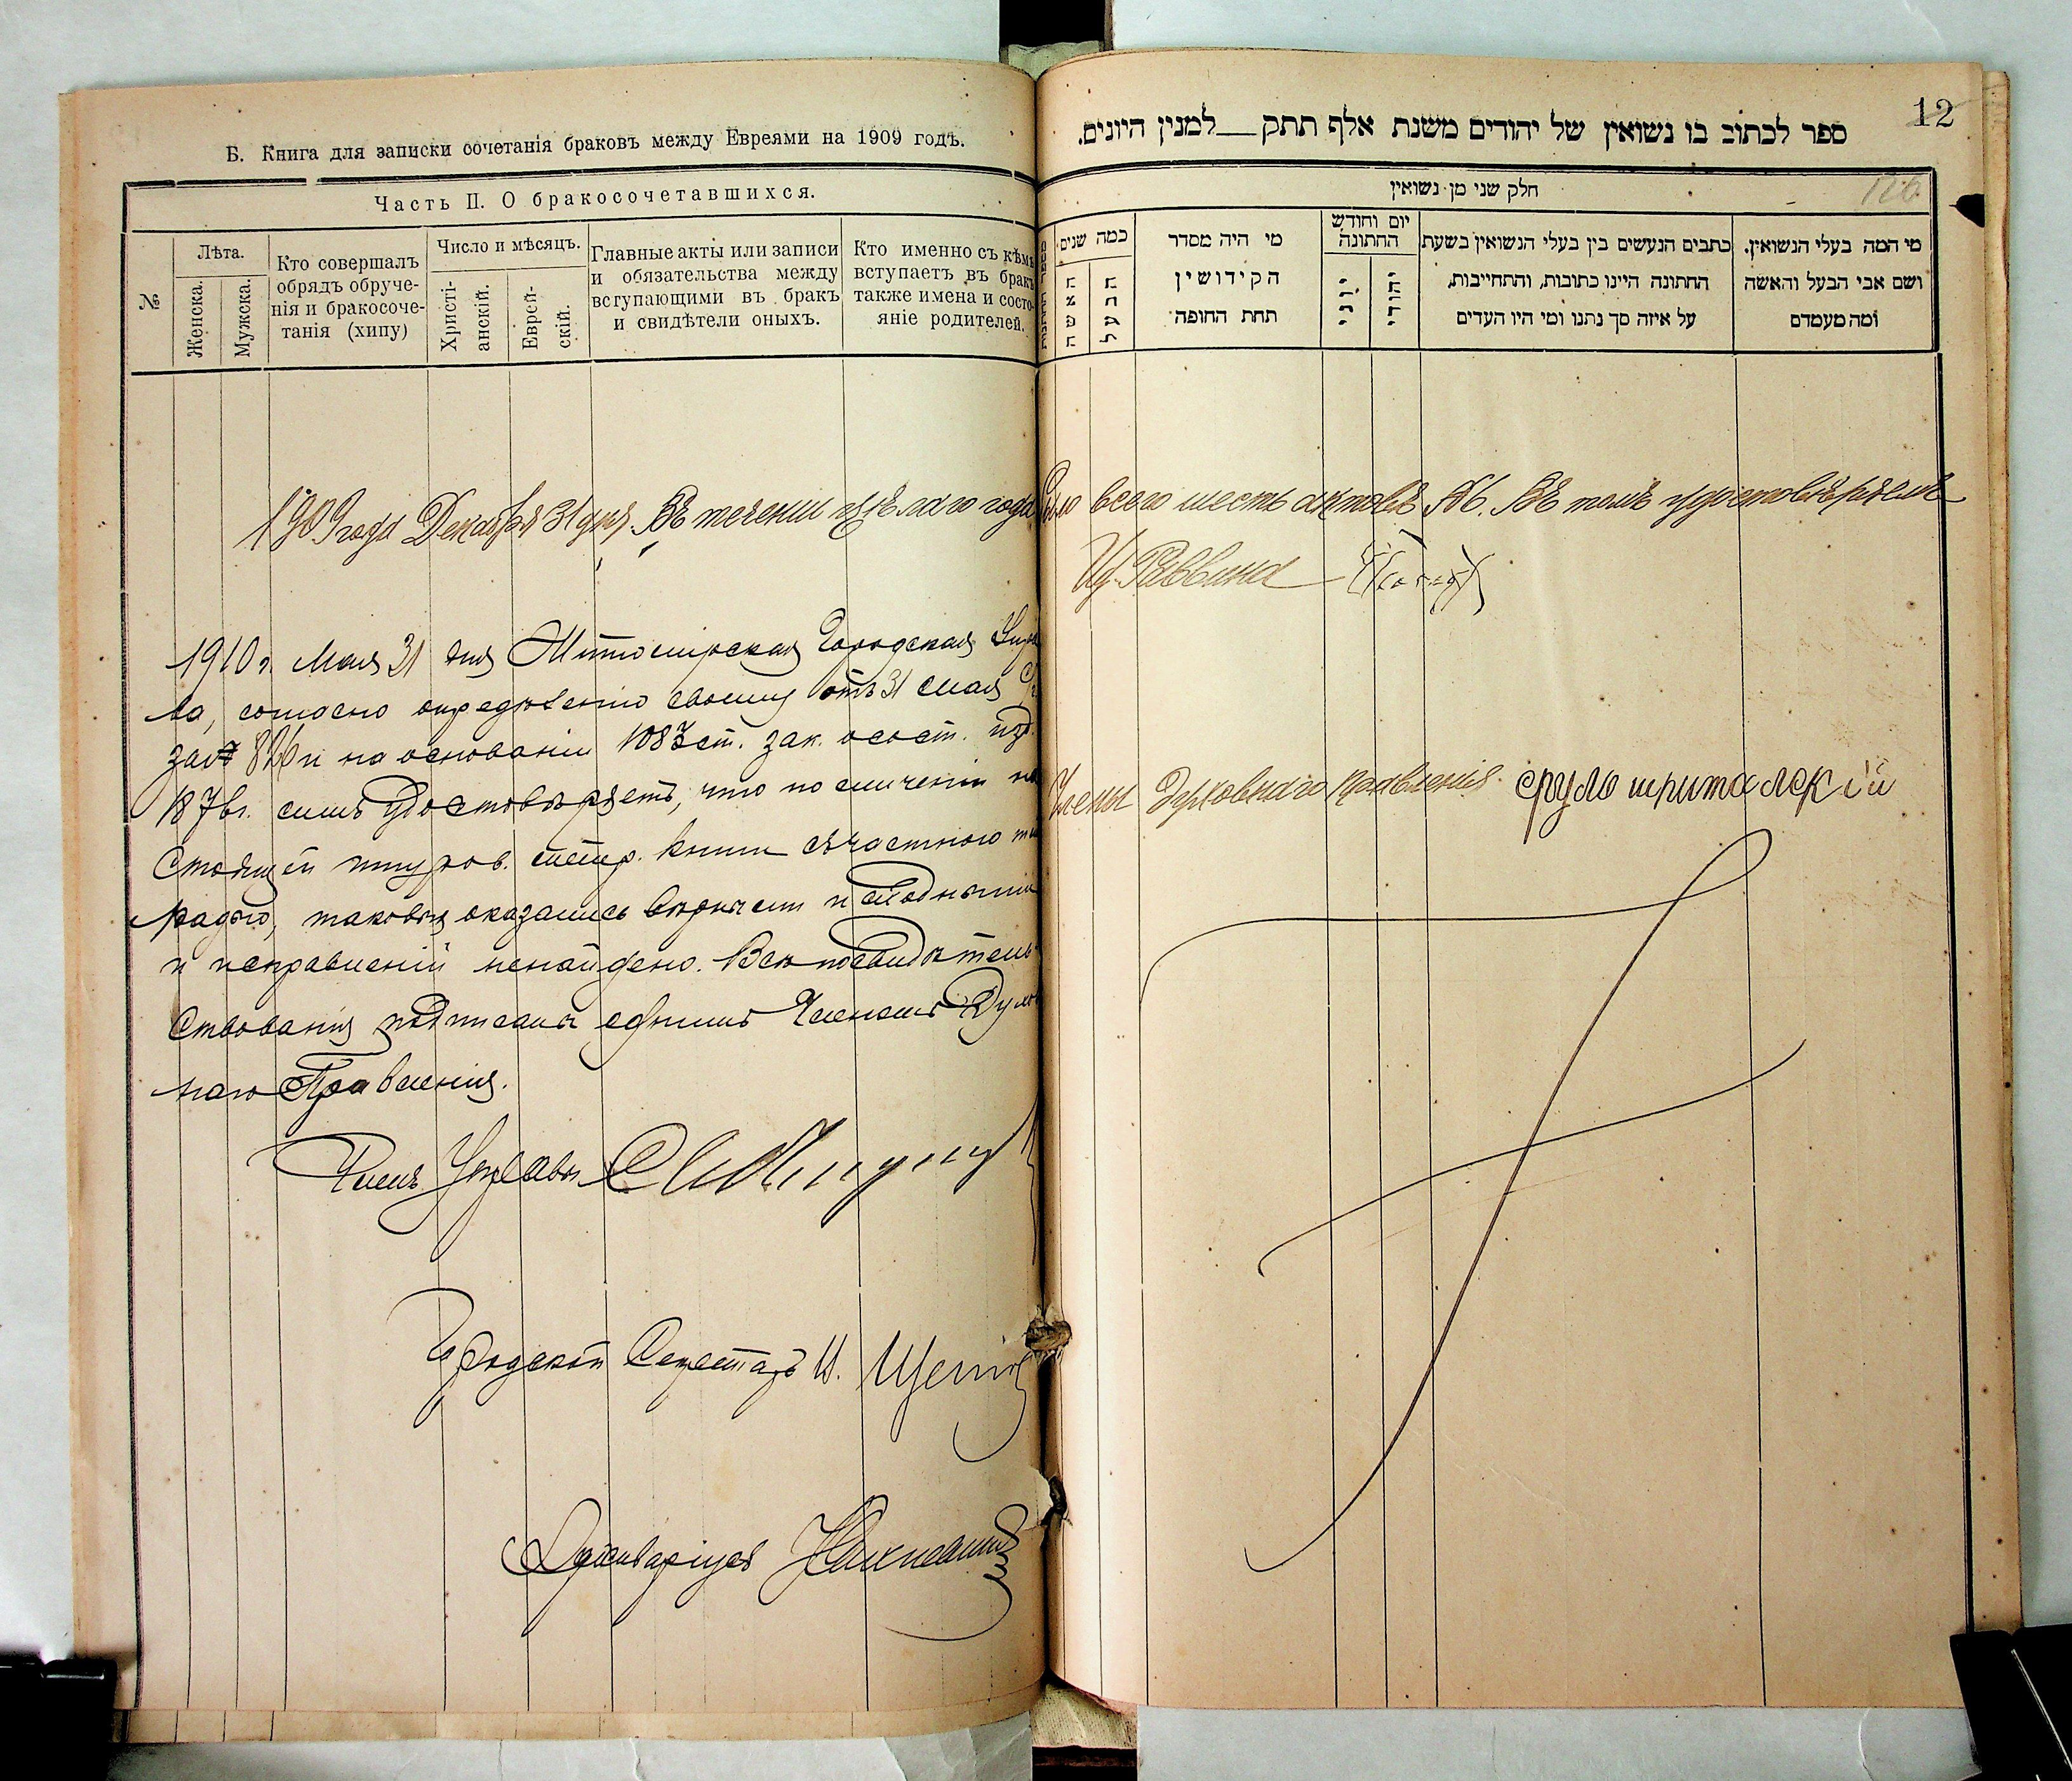 Б. Книга для записки сочетанія браковъ между Евреями на 1909 годъ.
Часть II. О бракосочетавшихся.
№
Лѣта.
Женска.
Мужска.
Кто совершалъ
обрядъ обруче-
нія и бракосоче-
танія (хипу)
Число и мѣсяцъ.
Христі-
анскій.
Еврей-
скій.
Главные акты или записи
и обязательства между
вступающими въ бракъ
и свидѣтели оныхъ.
Кто именно съ кѣмъ
вступаетъ въ бракъ
также имена и состо-
яніе родителей.
12
ספר לכתוב בו נשואין של יהודים משנת אלף תתק__למנין היונים.
חלק שני מן נשואין
כמה שנים
האשה
הבעל
מי היה מסדר
הקידושין
תחת החופה
יום וחודש
החתונה
יוני
יהודי
כתבים הנעשים בין בעלי הנשואין בשעת
החתונה היינו כתובות, והתחייבות,
על איזה סך נתנו ומי היו העדים
מי המה בעלי הנשואין.
ושם אבי הבעל והאשה
ומה מעמדם
1909 года Декабря 31 дня. Въ теченіи цѣлаго года было всего шесть актовъ №6. Въ томъ удостовѣряемъ
И. Раввина
1910 г. Мая 31 дня Житомирская Городская Упра
ва, согласно опредѣленію своему отъ 31 мая
за № 826 и на основаніи 1083 ст. зак. о сост. изд.
1876 г. симъ удостовѣряетъ, что по сличеніи на
стоящей шнуров. метр. книги съ частною те
традью, таковыя оказались вѣрными и сходными
и исправленій ненайдено. Всѣ посвидѣтель
ствованія подписаны однимъ Членомъ Духов
наго Правленія.
Членъ Управы
Городской Секретарь И.
Архиваріусъ
Члены Духовнаго Правленія. сруль шриталскій